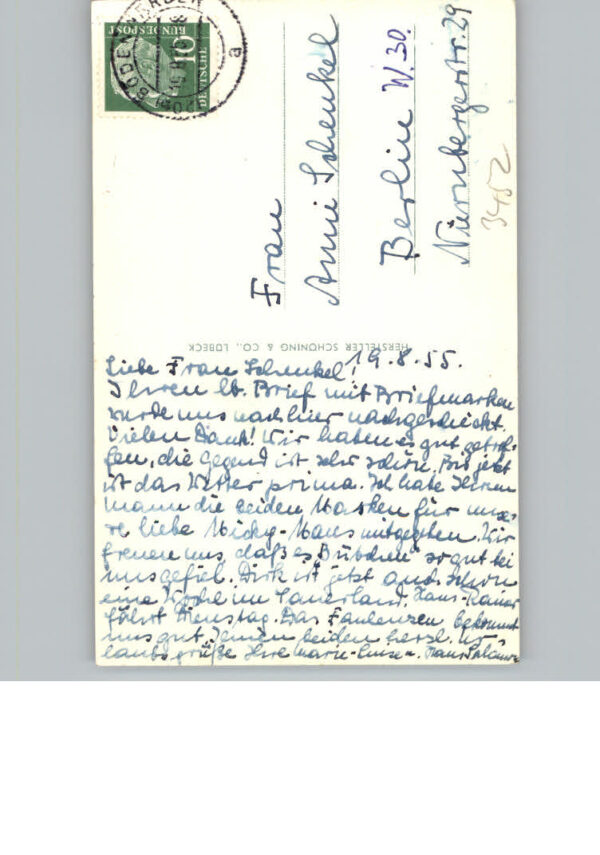 BODENWERDER
a
DEUTSCHE
BUNDESPOST
10
Frau
Anni Schenkel
Berlin W. 30.
Nürnbergerstr. 29
3452
HERSTELLER SCHÖNING & CO., LÜBECK
19.8.55.
Liebe Frau Schenkel!
Ihren lb. Brief mit Briefmarken
wurde uns nach hier nachgeschickt.
Vielen Dank! Wir haben es gut getrof-
fen, die Gegend ist sehr schön. Bis jetzt
ist das Wetter prima. Ich habe Ihrem
Mann die beiden Marken für unse-
re liebe Micky-Maus mitgegeben. Wir
freuen uns, daß es "Bübchen" so gut bei
uns gefiel. Dirk ist jetzt auch schon
eine Woche im Sauerland. Hans-Rainer
fährt Dienstag. Das Faulenzen bekommt
uns gut. Ihnen beiden herzl. Ur-
laubsgrüße Ihre Marie-Luise u. Hans